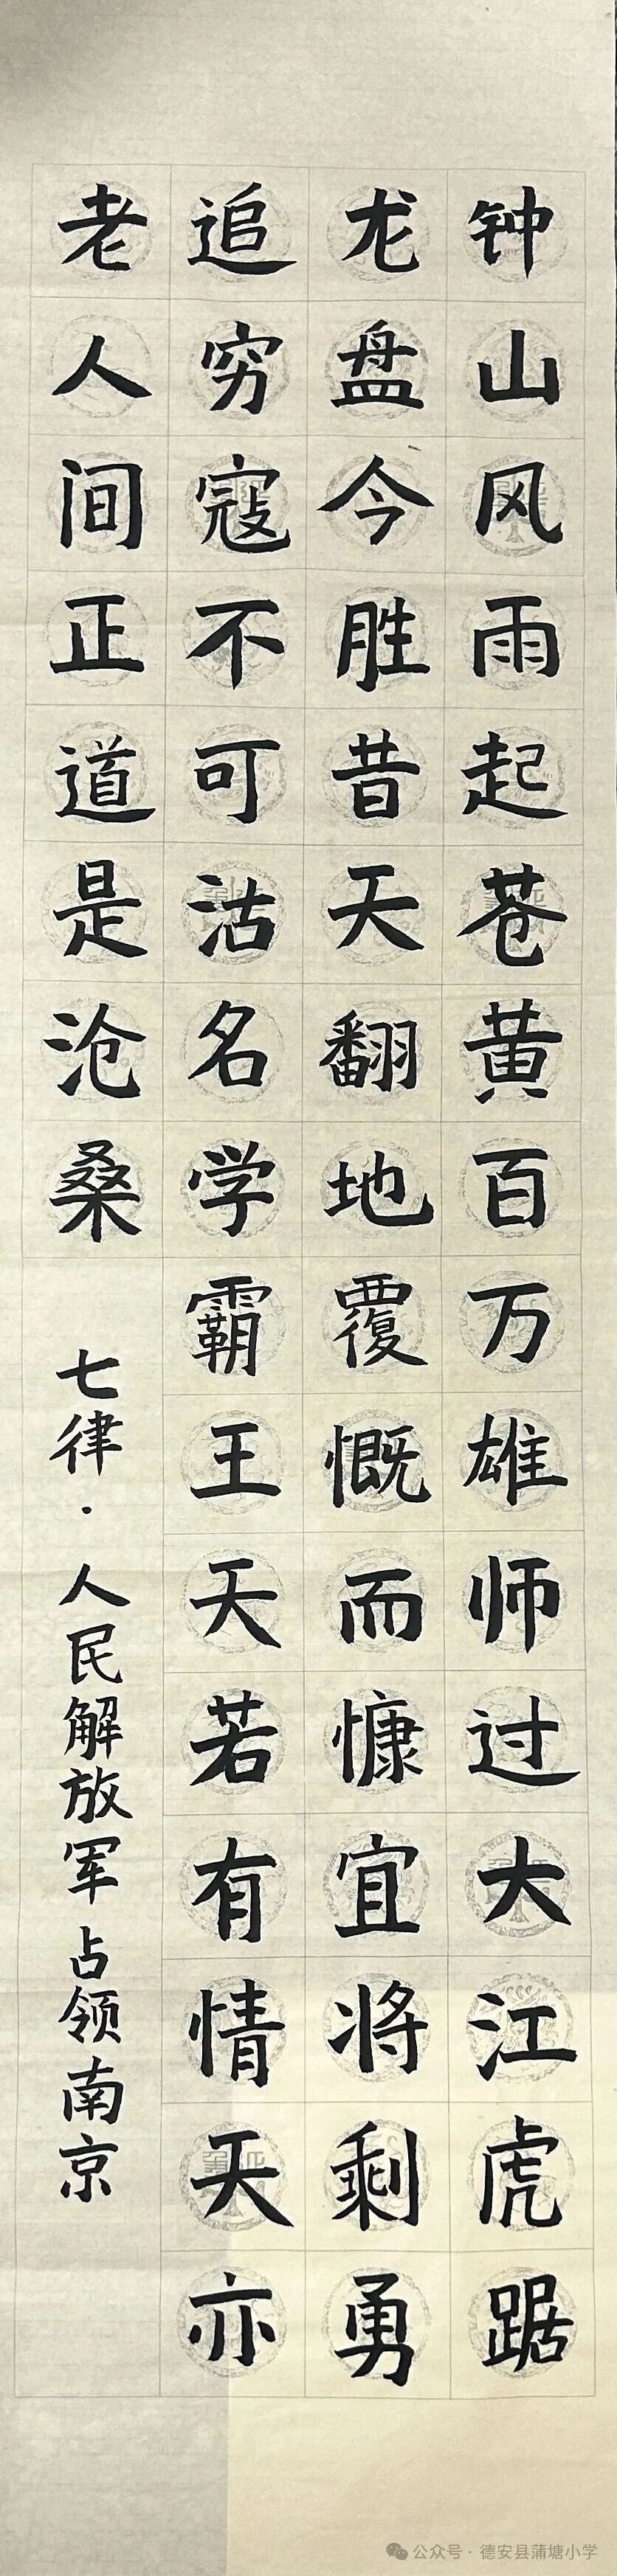 钟山风雨起苍黄百万雄师过大江虎踞
龙盘今胜昔天翻地覆慨而慷宜将剩勇
追穷寇不可沽名学霸王天若有情天亦
老人间正道是沧桑
七律·人民解放军占领南京
公众号·德安县蒲塘小学